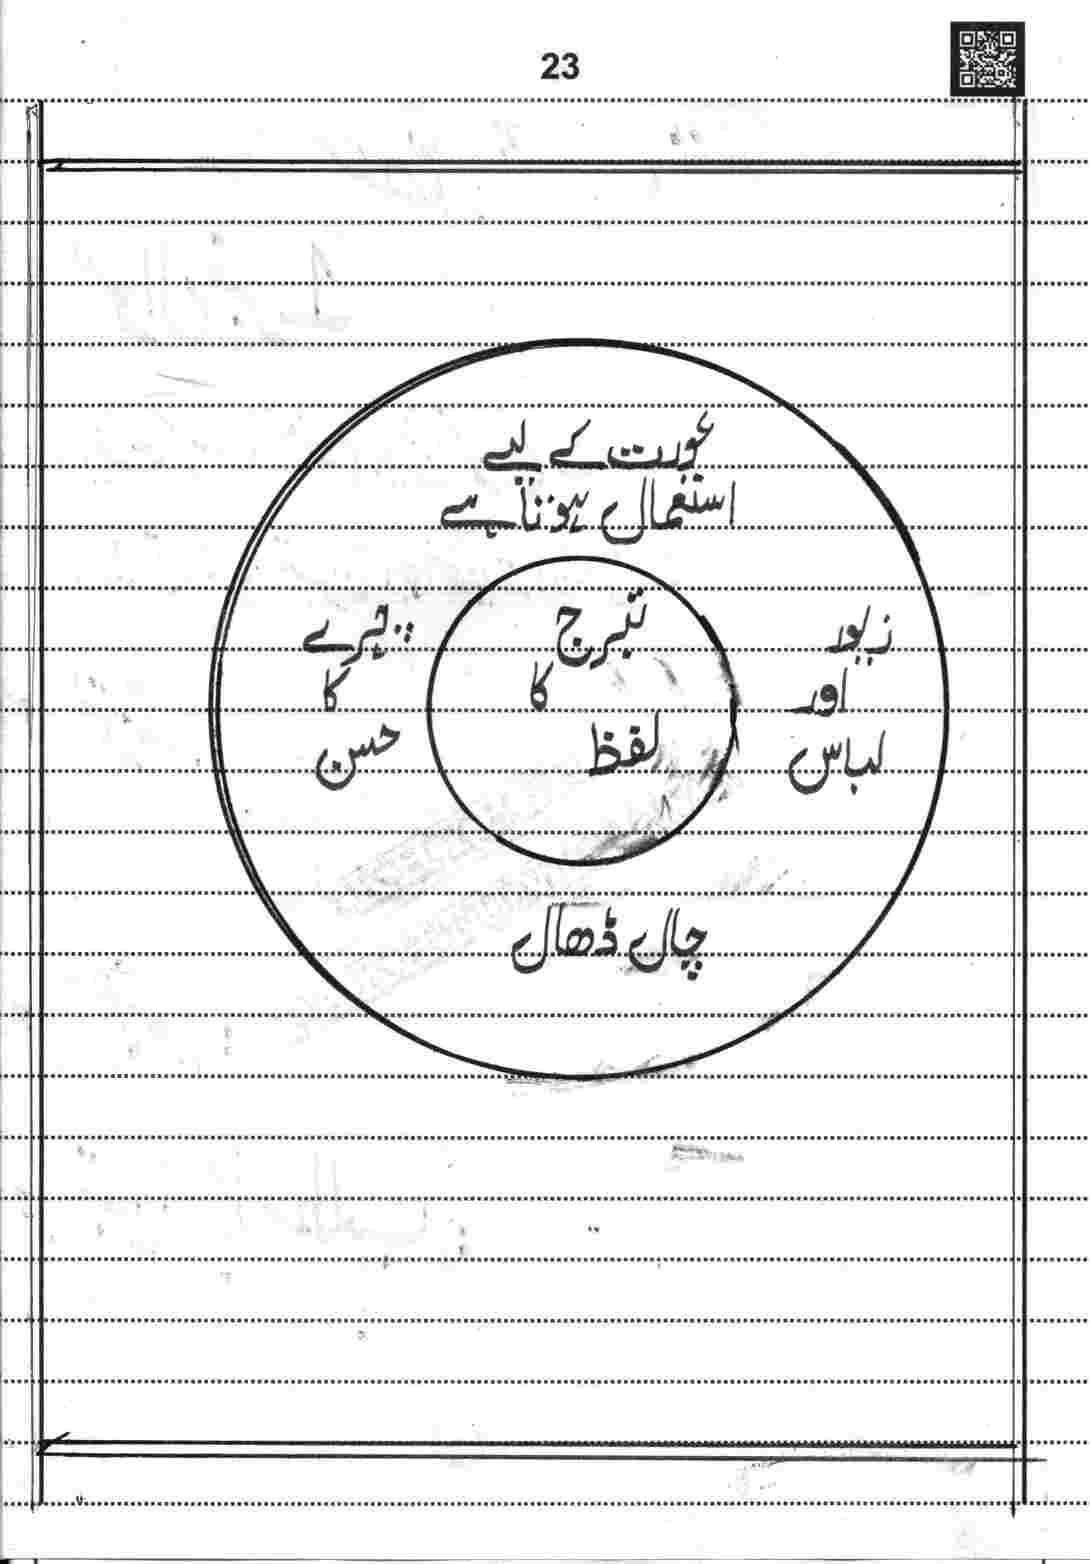 23
عورت کے لیے
استعمال ہوتا ہے
تبرج
کا
لفظ
زیور
اور
لباس
چہرے
کا
حسن
چال ڈھال